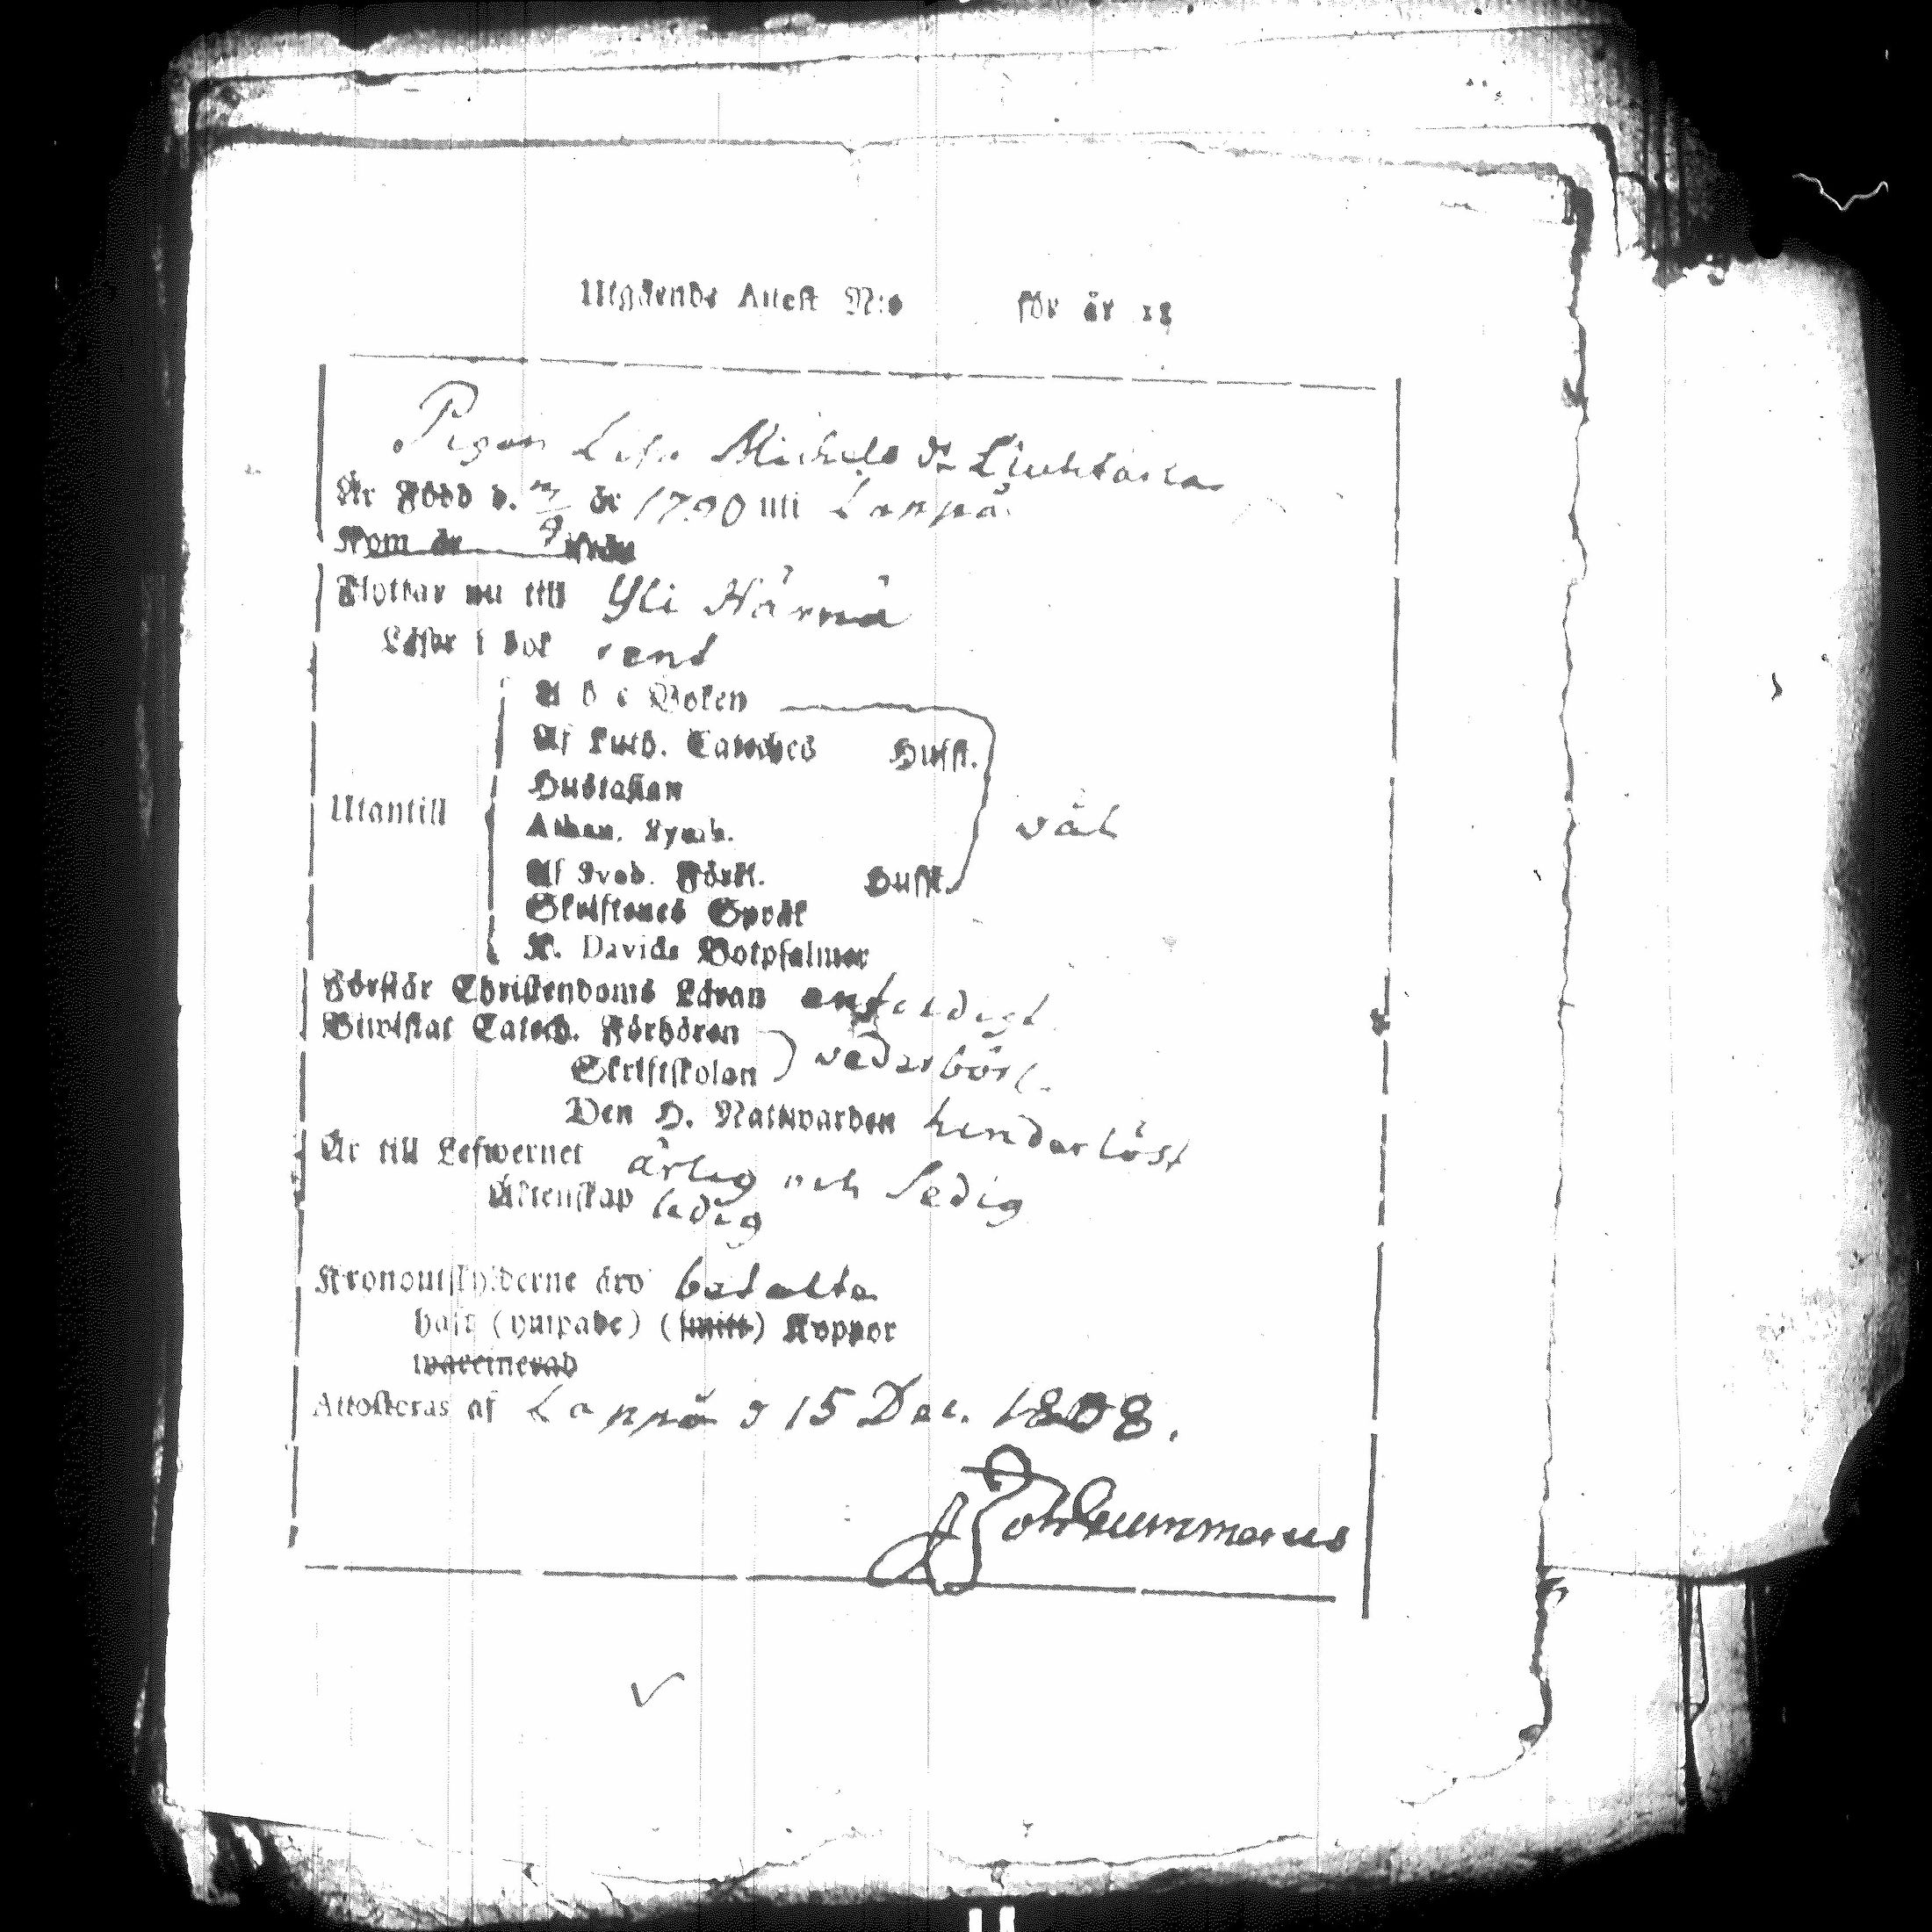 Utgående Attest N:o för år 18
Pigan Lisa Michels dr Liuhtari
Är Född d. år 1790 uti Lappå
Kom år ifrån
Flyttar nu till Yli Härmä
Läser i bok rent
A b c Boken
Af Luth. Cateches Hufst.
Hustaflan
Utantill Athan. Symb. väl
Af Sveb. Förkl. Hufst.
Skriftenes Språk
K. Davids Botpsalmer
Förstår Christendoms Läran enfaldigt
Biwistat Catech. Förhören
Skriftskolan vederbörl.
Den H. Nattwarden hinderlöst
Är till Lefwernet ärlig och Sedig
Äktenskap ledig
Kronoutskylderne äro betalta
haft (ympade) (smitt) Koppor
waccinerad
Attesteras af Lappå d 15 Dec. 1808.
Joh Gummerus